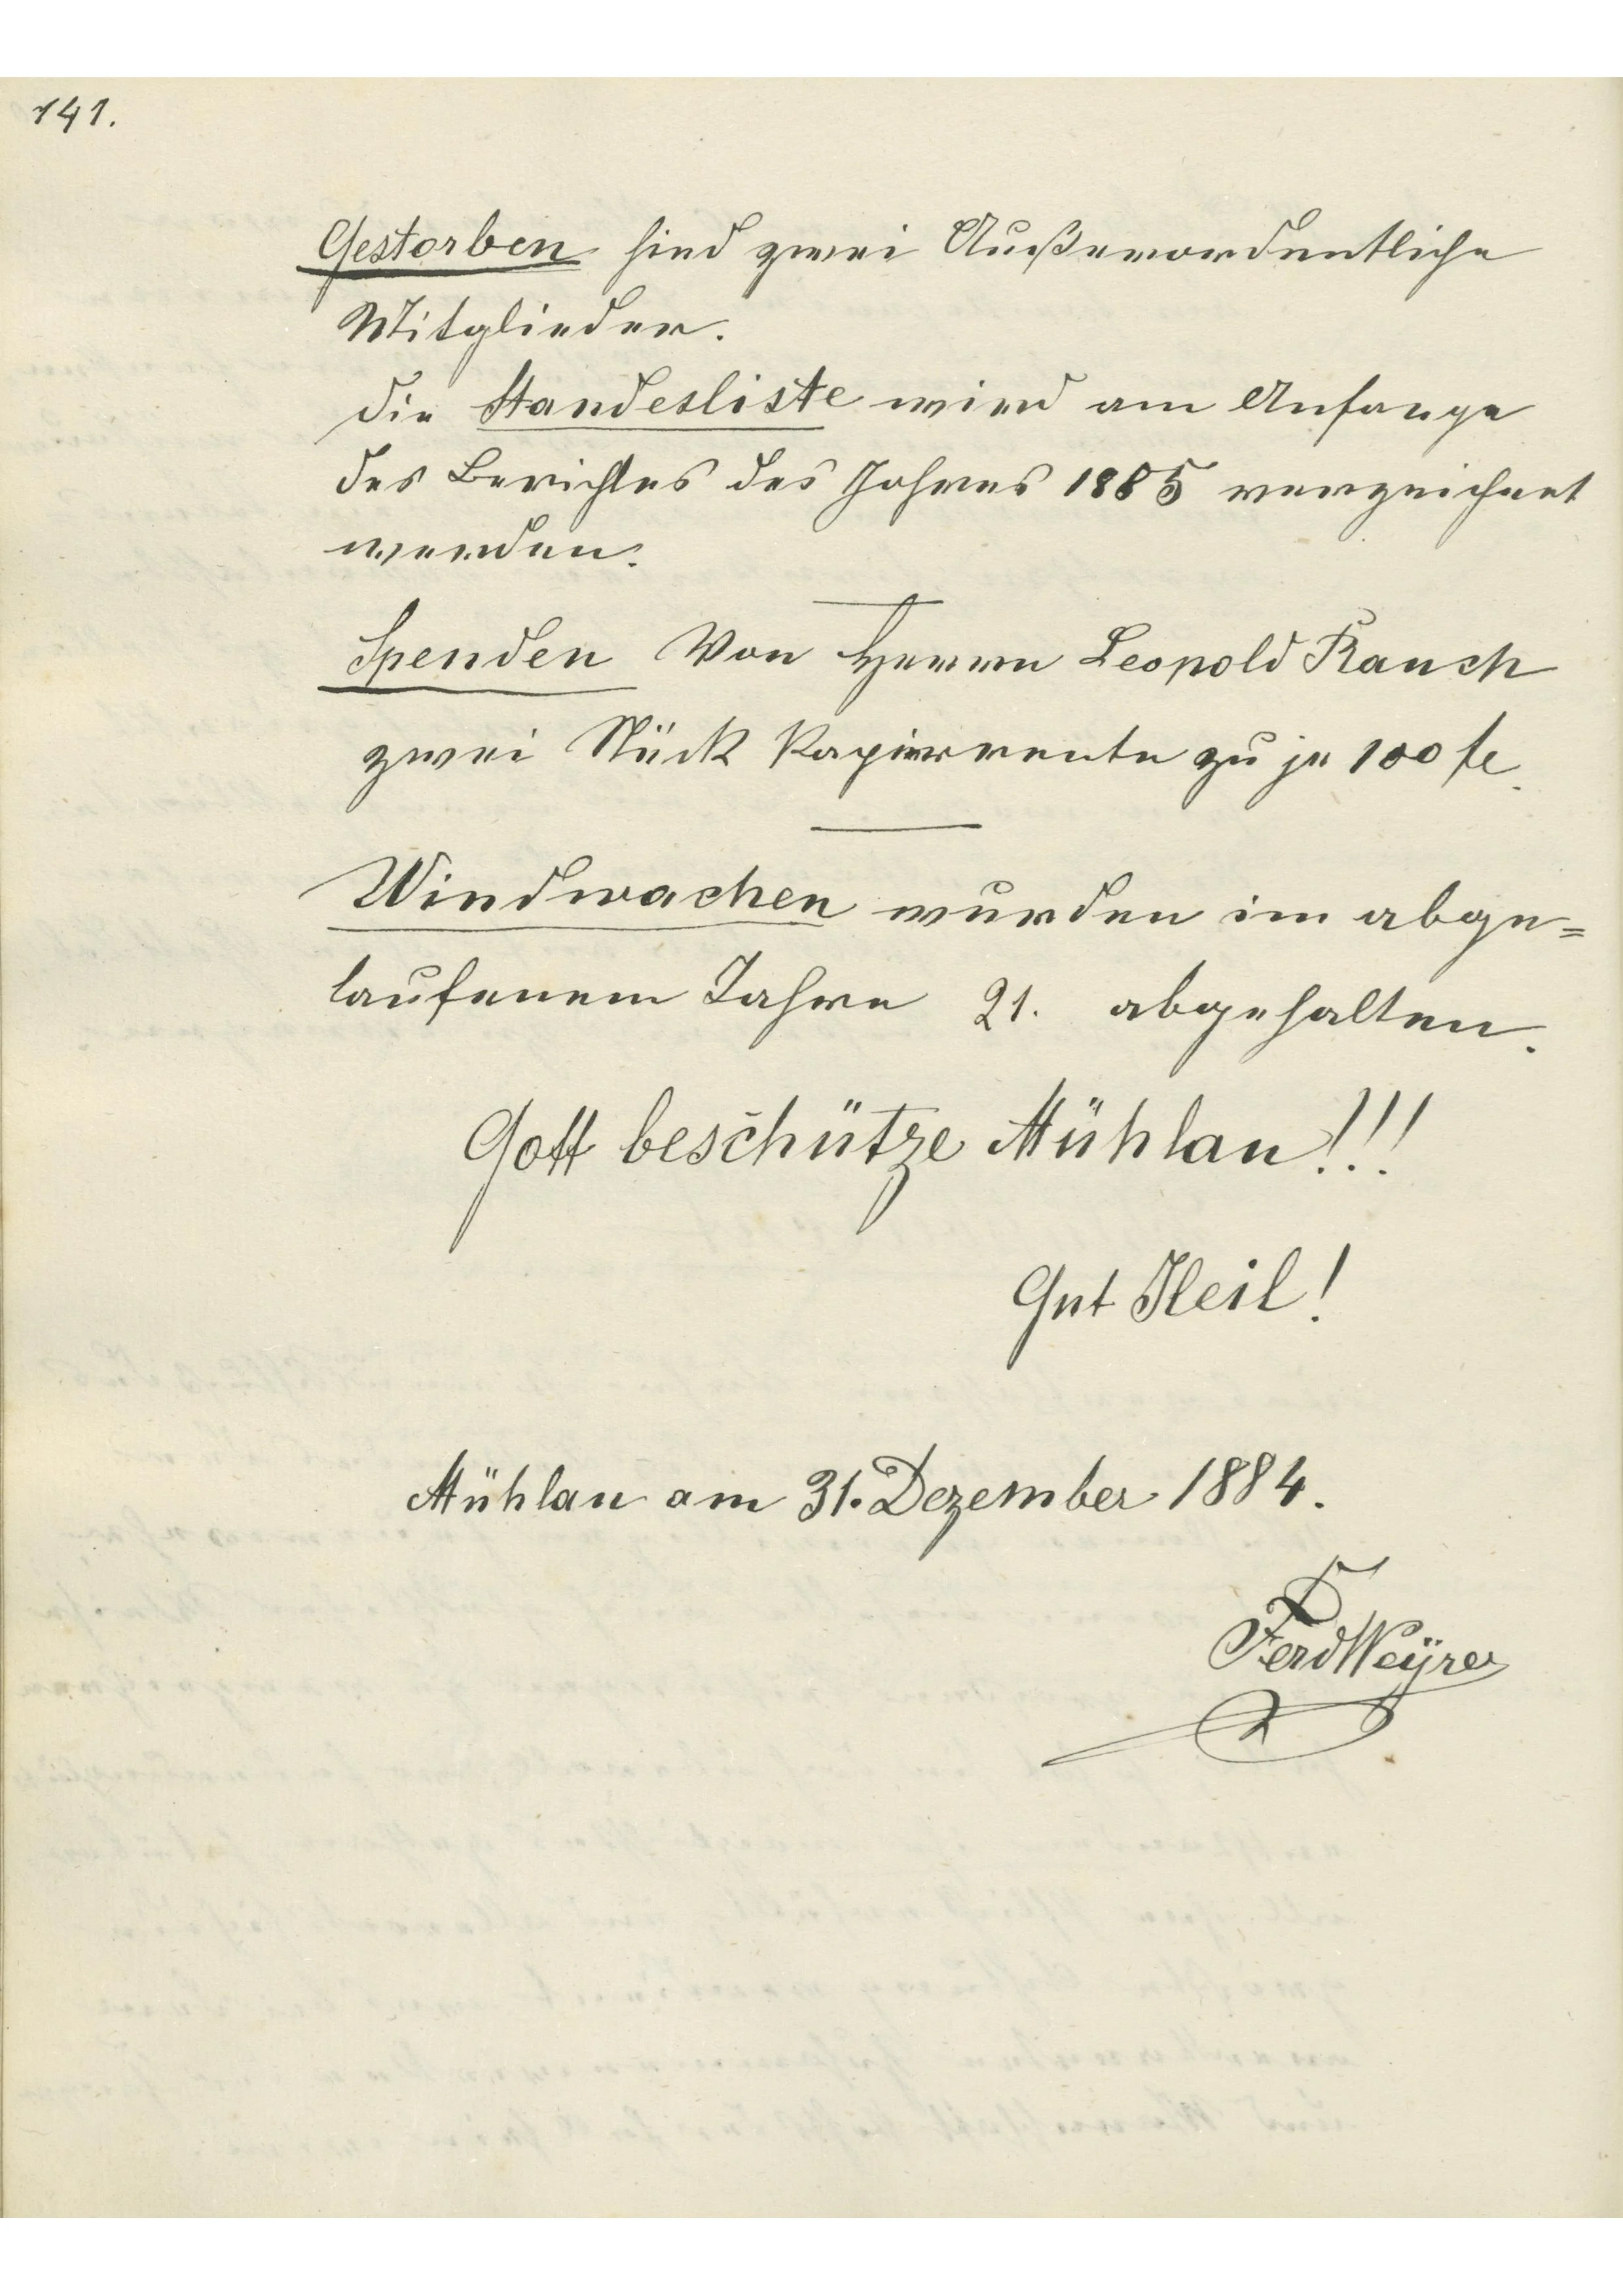 141.
Gestorben sind zwei Außerordentliche
Mitglieder.
Die Standesliste wird am Anfange
des Berichtes des Jahres 1885 verzeichnet
werden.
Spenden Von Herrn Leopold Rauch
zwei Stück Papierrente zu je 100 fl.
Windwachen wurden im abge=
laufenem Jahre 21. abgehalten.
Gott beschütze Mühlau!!!
Gut Heil!
Mühlau am 31. Dezember 1884.
Ferd Weÿrer